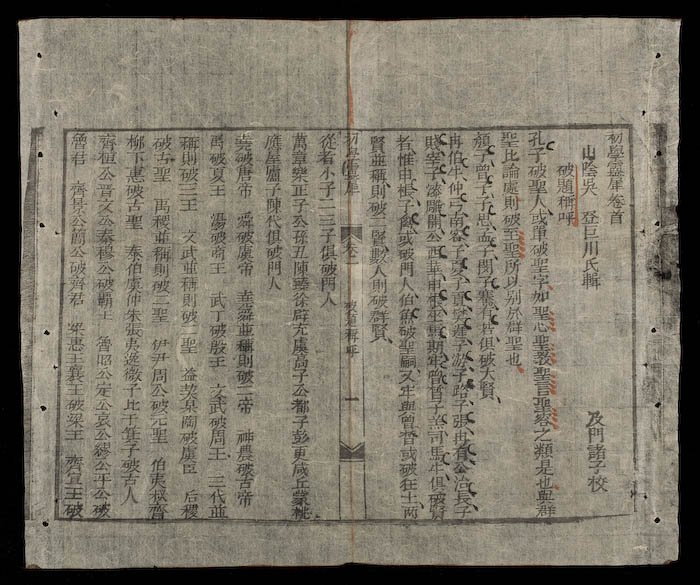 初學靈犀卷首
山陰吳　登巨川氏輯　　及門諸子校
破題稱呼
孔子破聖人或單破聖字如聖心聖教聖言聖容之類是也與群
聖比論處則破至聖所以別於群聖也
顏子曾子子思孟子閔子騫有若俱破大賢
冉伯牛仲弓南容子夏子貢子游子路子張冉有公冶長子
賤宰予漆雕開公西華申棖巫馬期牢曾晳子羔司馬牛俱破賢
者惟申棖子禽或破門人伯魚破聖嗣又牢與曾晳或破狂士兩
賢並稱則破二賢數人則破群賢
初學靈犀　卷首　破題稱呼　一
從者小子二三子俱破門人
萬章樂正子公孫丑陳臻徐辟充虞高子公都子彭更咸丘蒙桃
應屋廬子陳代俱破門人
堯破唐帝　舜破虞帝　堯舜並稱則破二帝　神農破古帝
禹破夏王　湯破商王　武丁破殷王　文武破周王　三代並
稱則破三王　文武並稱則破二聖　益契皋陶破虞臣　后稷
破古聖　禹稷並稱則破二聖　伊尹周公破元聖　伯夷叔齊
柳下惠破古聖　泰伯虞仲朱張夷逸微子比干箕子破古人
齊桓公晉文公秦穆公破霸王　魯昭公定公哀公繆公平公破
魯君　齊景公簡公破齊君　梁惠王襄王破梁王　齊宣王破